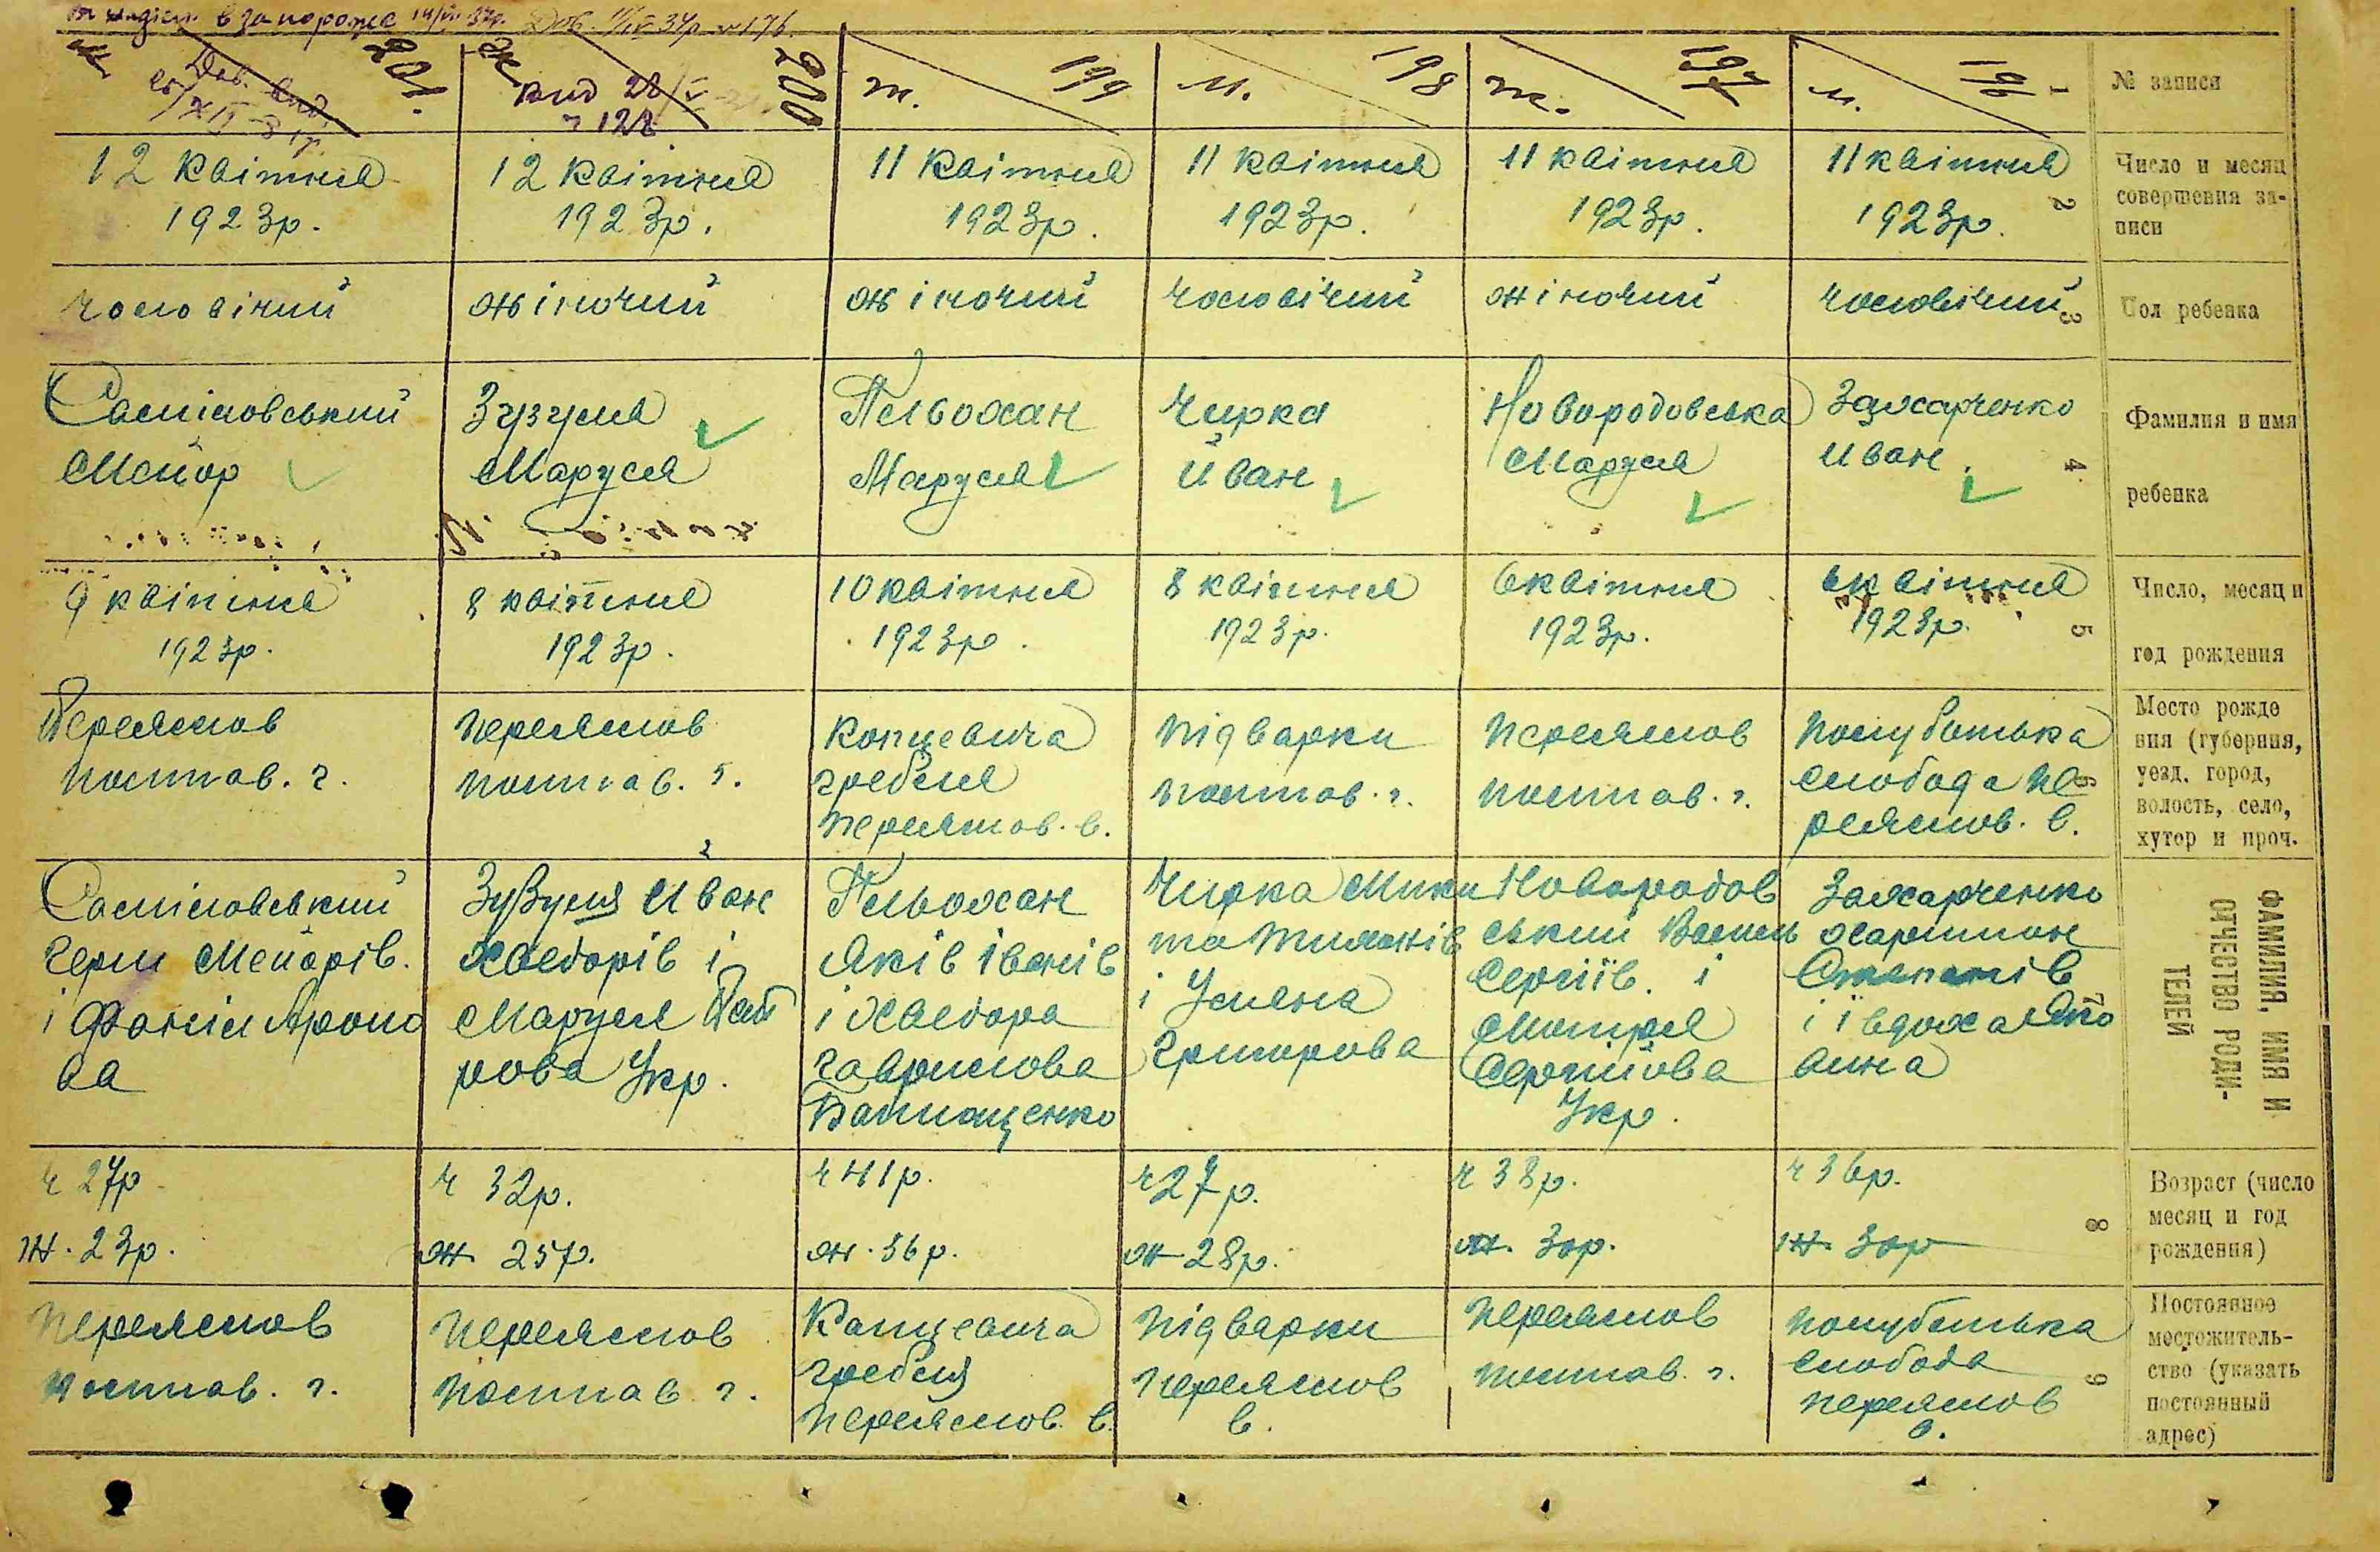 в Запорожжє 14/VII 37р. Дов. 11/IV-34р №176.
201.
Дов. вид.
200
Ж
вид 28/V
№ 122
199
ж.
198
м.
197
ж.
196
м.
1
№ записи
12 Квітня
1923р.
12 Квітня
1923р.
11 Квітня
1923р.
11 Квітня
1923р.
11 квітня
1923р.
11 квітня
1923р.
2
Число и месяц
совершения за-
писи
чоловічий
жіночий
жіночий
чоловічий
жіночий
чоловічий
3
Пол ребенка
Сміловський
Мейор
Зузуля
Маруся
Пельохан
Маруся
Чирка
Йван
Новородовська
Маруся
Захарченко
Иван.
4.
Фамилия и имя
ребенка
9 квітня
1923р.
8 квітня
1923р.
10 квітня
1923р.
8 квітня
1923р.
6 квітня
1923р.
6 квітня
1923р.
5
Число, месяц и
год рождения
Переяслов
Полтав. г.
Переяслов
Полтав. г.
Копцевича
гребля
Переяслов. в.
Підварки
Полтав. г.
Переяслов
Полтав. г.
Полуботька
слобода Пе
реяслов. в.
6
Место рожде
ния (губерния,
уезд, город,
волость, село,
хутор и проч.
Герш Мейорів.
і Фаніи Ароно
ва
Зузуля Иван
Хведорів і
Маруся
рова Укр.
Пельохан
Яків Іванів
і Хведора
Гаврилова
Чирка Мики
та Тиманів
і Уляна
Григорова
Новородов
ський Василь
Сергіїв. і
Мотря
Сергійова
Укр.
Захарченко
Харитон
Степанів
і Івдоха Яко
вина
7
ФАМИЛИЯ, ИМЯ И
ОТЧЕСТВО РОДИ-
ТЕЛЕЙ
ч 27р
ж. 23р.
ч 32р.
ж 25р.
ч 41р.
ж. 36р.
ч 27р.
ж 28р.
ч 38р.
ж. 30р.
ч 36р.
ж. 30р
8
Возраст (число
месяц и год
рождения)
Переяслов
Полтав. г.
Переяслов
Полтав. г.
Капцевича
гребля
Переяслов. в.
Підварки
Переяслов
в.
Переяслов
Полтав. г.
Полуботька
слобода
Переяслов
в.
9
Постоянное
местожитель-
ство (указать
постоянный
адрес)